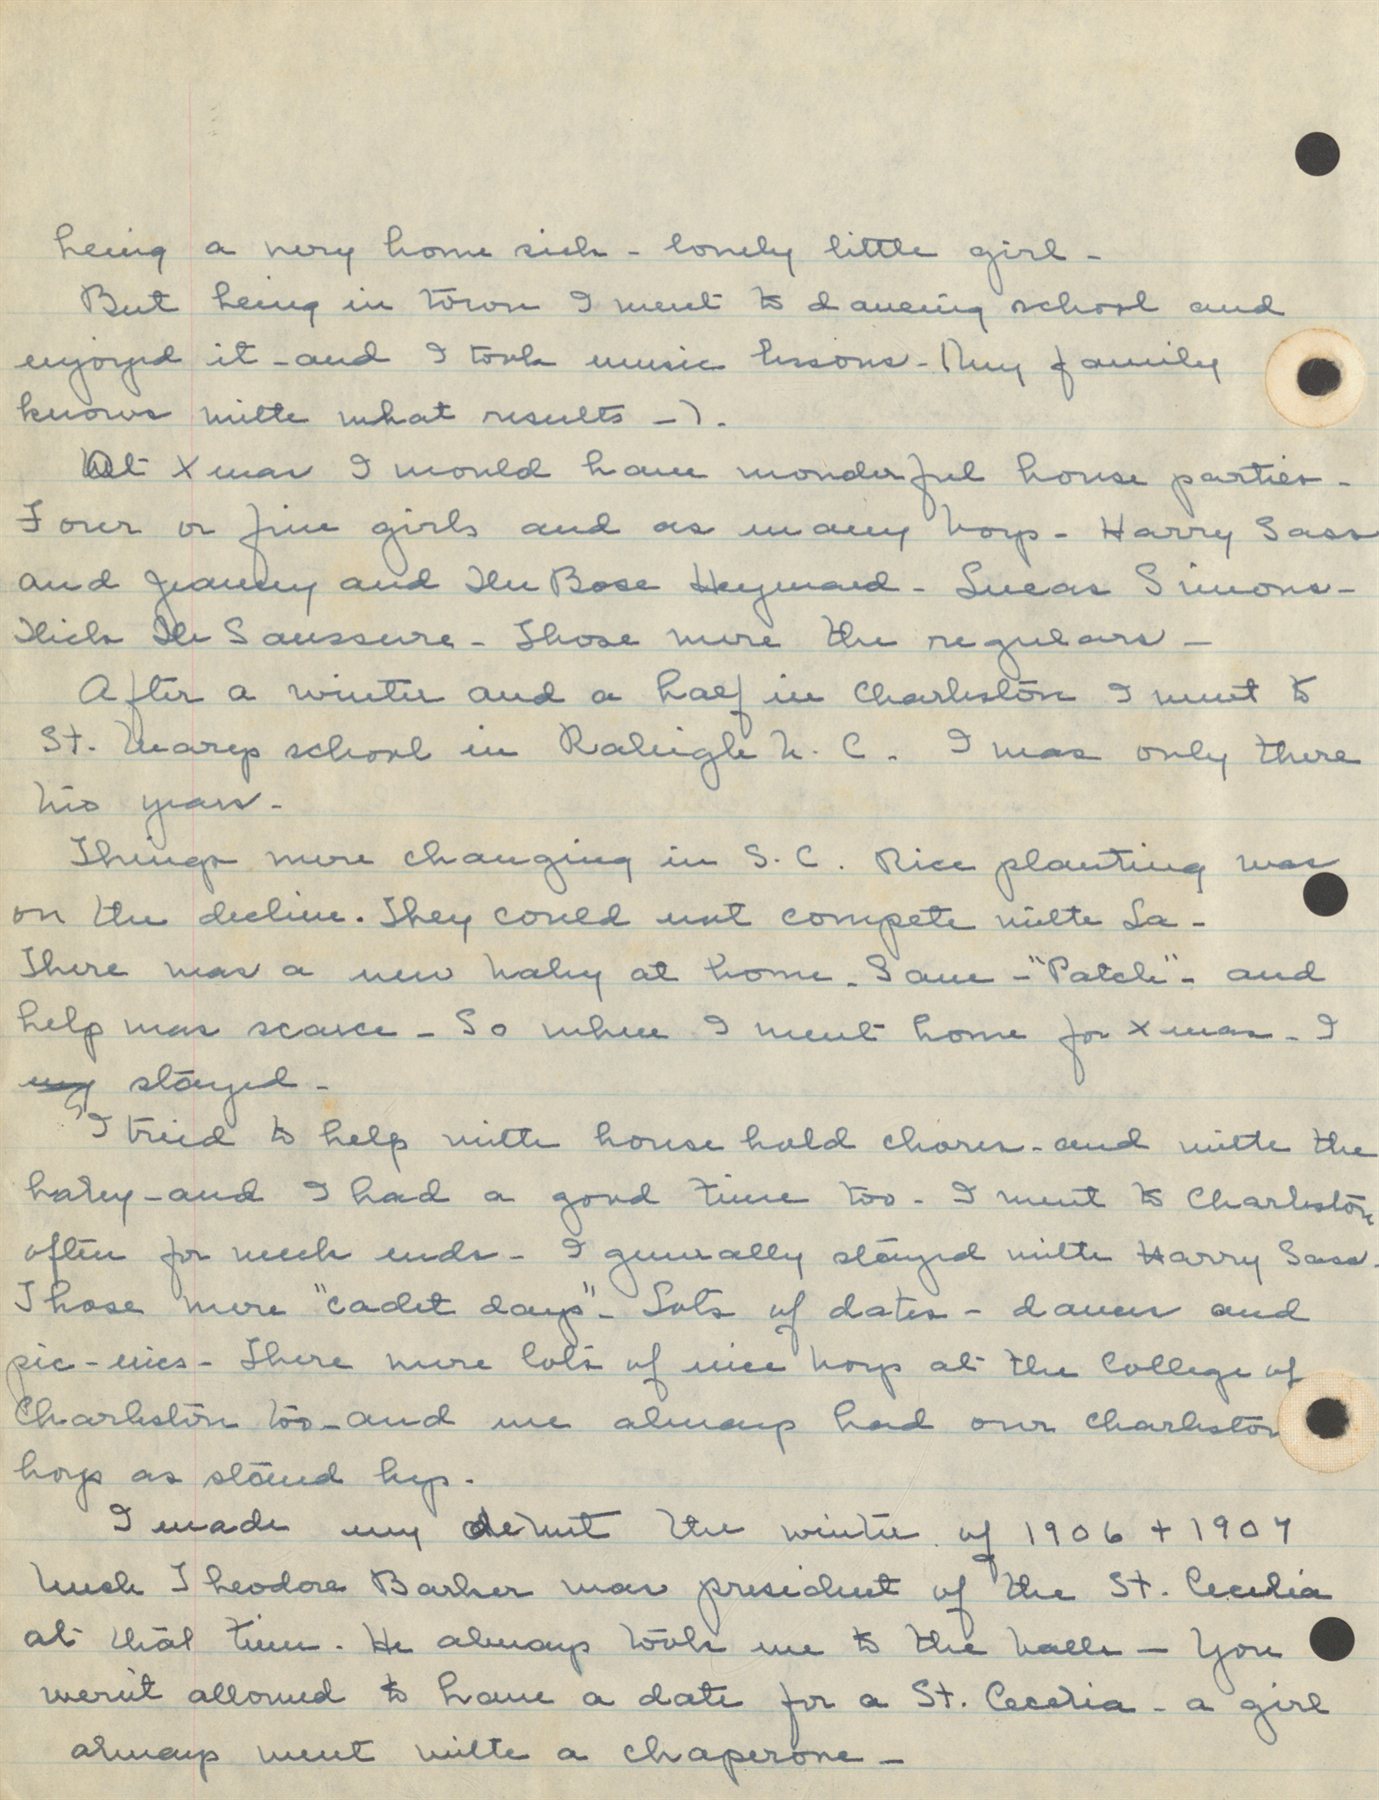 being a very home sick - lonely little girl -
But being in town I went to dancing school and
enjoyed it - and I took music lessons - (my family
knows with what results -).
At Xmas I would have wonderful house parties -
Four or five girls and as many boys - Harry Sass
and Jeanny and Du Bose Heyward - Lucas Simons -
Dick De Saussure - Those were the regulars -
After a winter and a half in Charleston I went to
St. Marys school in Raleigh N. C. I was only there
two years -
Things were changing in S. C. Rice planting was
on the decline. They could not compete with La -
There was a new baby at home - Jane - "Patch" - and
help was scarce - So when I went home for Xmas - I
stayed -
I tried to help with house hold chores - and with the
baby - and I had a good time too - I went to Charleston
often for week ends - I generally stayed with Harry Sass -
Those were "cadet days" - Lots of dates - dances and
pic-nics - There were lots of nice boys at the College of
Charleston too - and we always had our Charleston
boys as stand bys -
I made my debut the winter of 1906 + 1907
Uncle Theodore Barker was president of the St. Cecelia
at that time. He always took me to the balls - You
weren't allowed to have a date for a St. Cecelia - a girl
always went with a chaperone -